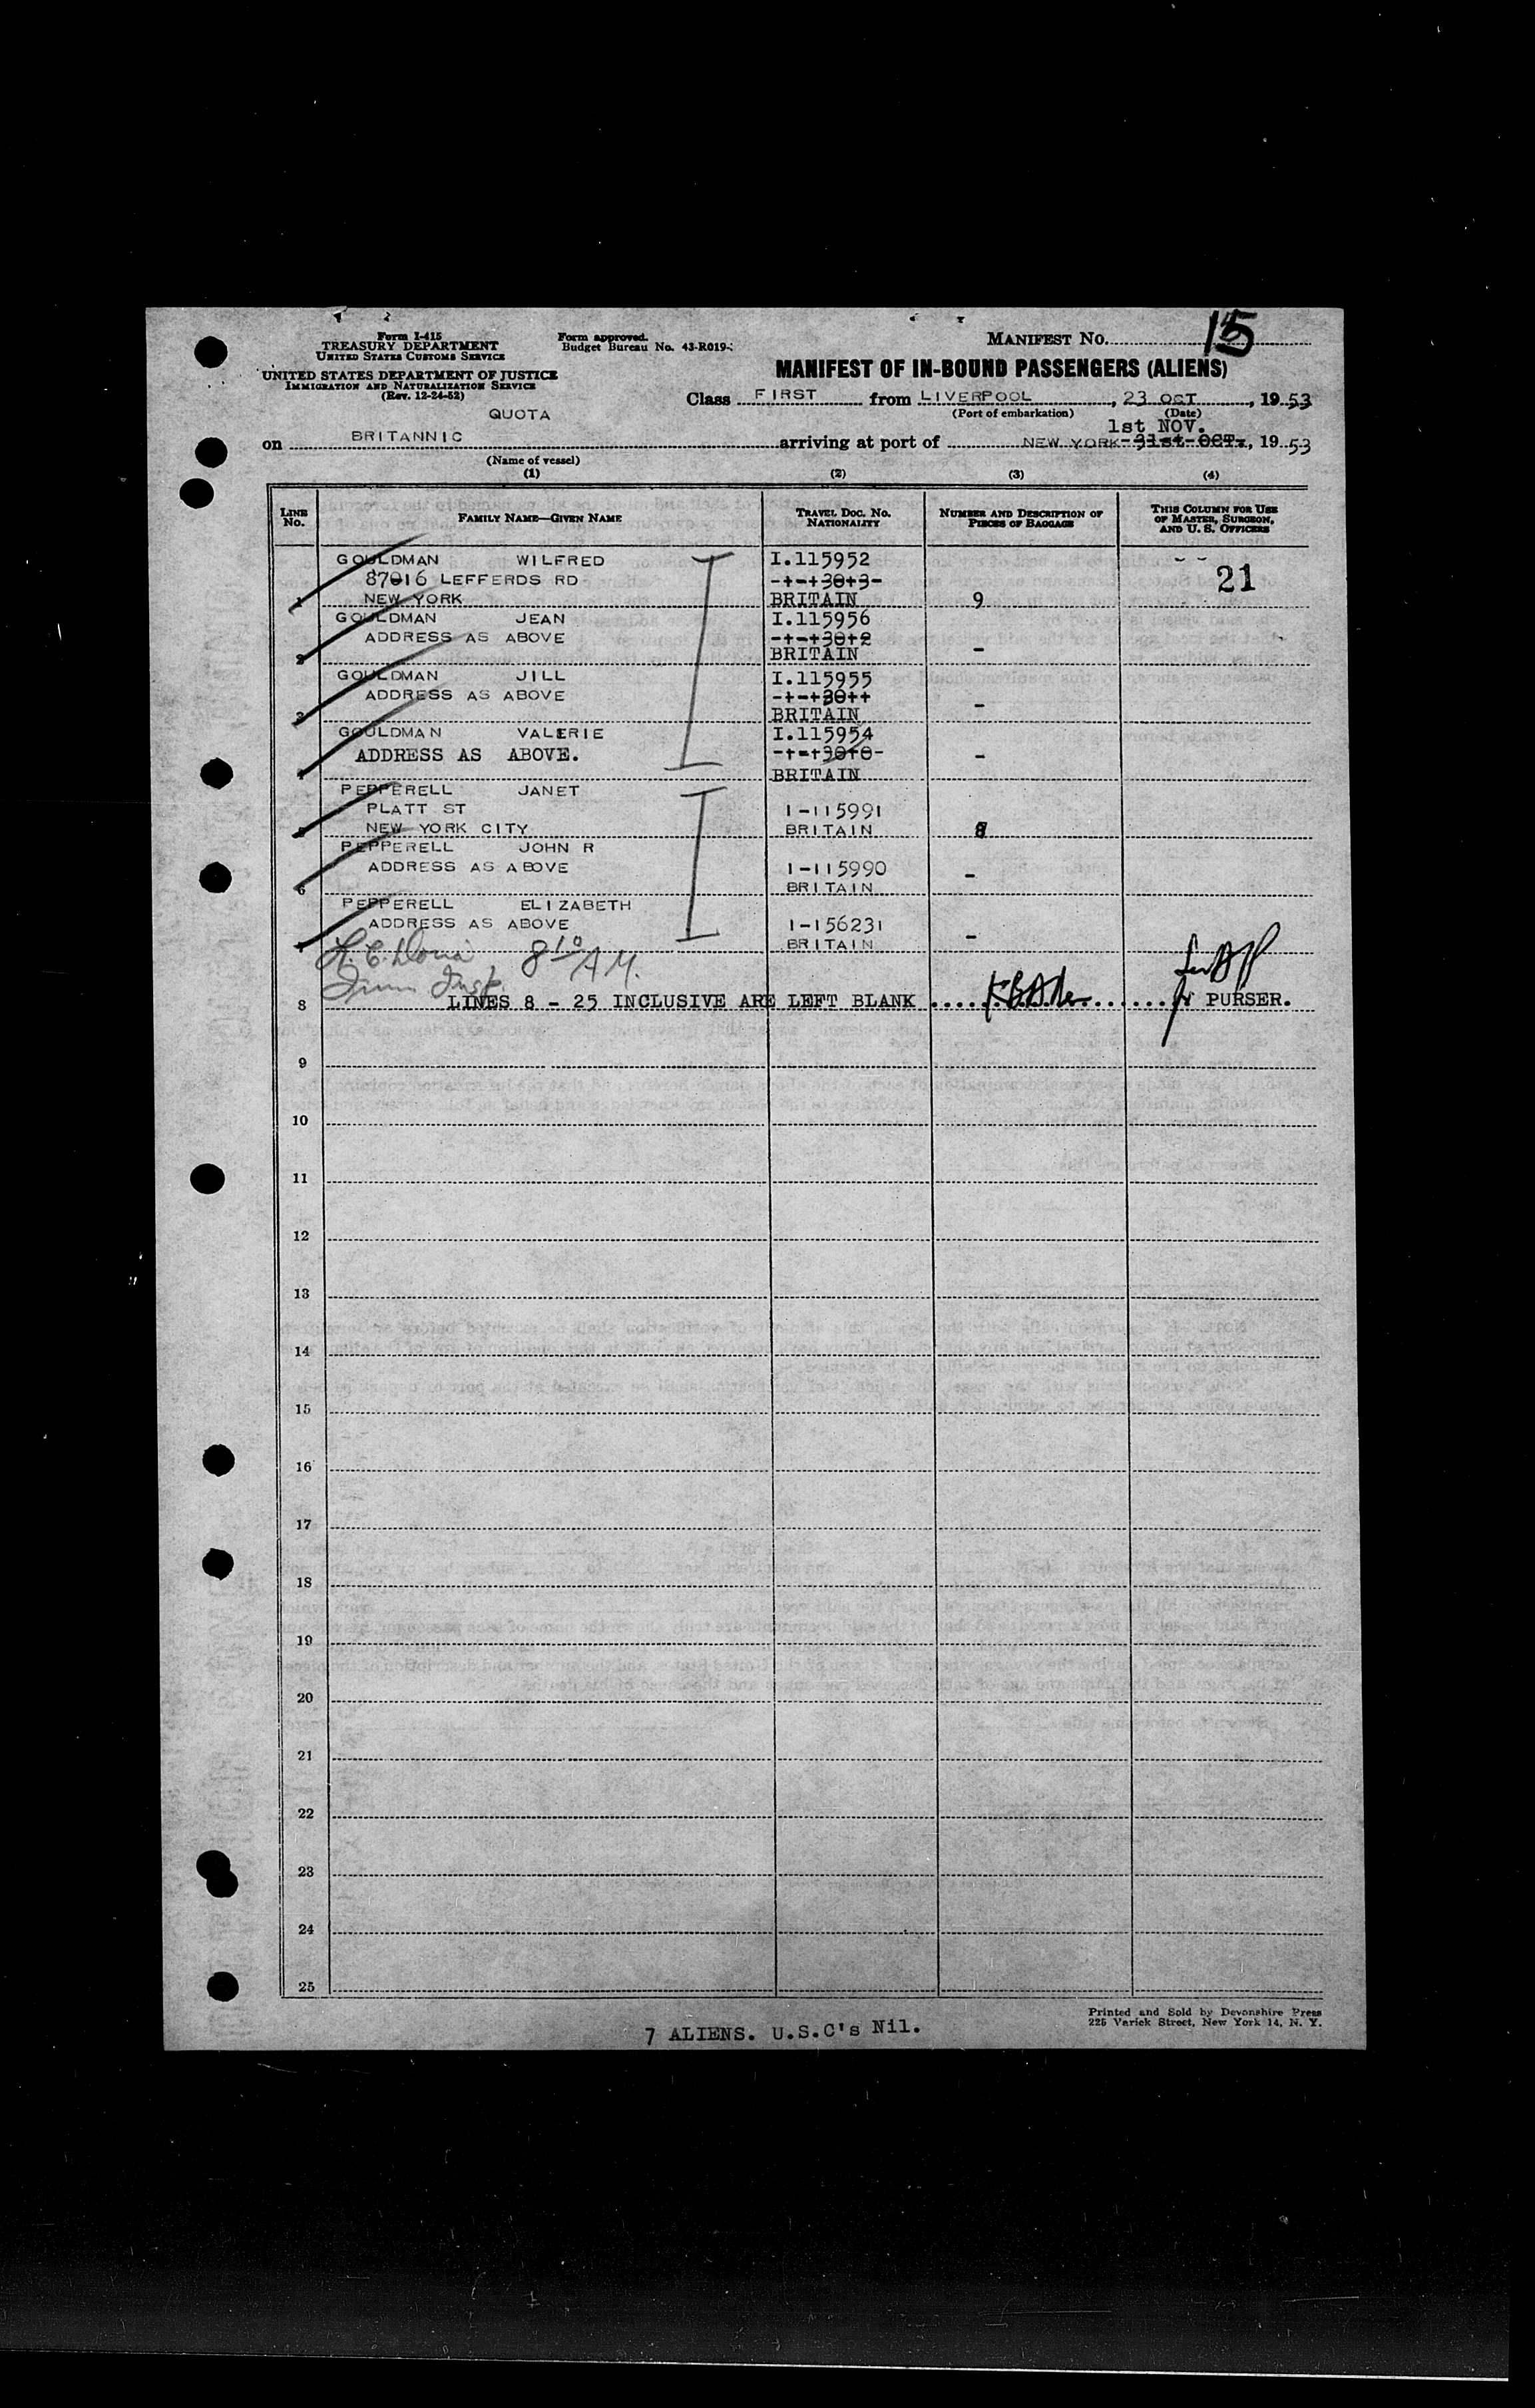 Form I-415
TREASURY DEPARTMENT
UNITED STATES CUSTOMS SERVICE
UNITED STATES DEPARTMENT OF JUSTICE
IMMIGRATION AND NATURALIZATION SERVICE
(Rev. 12-24-52)
Form approved.
Budget Bureau No. 43-R019-
MANIFEST NO. 15
MANIFEST OF IN-BOUND PASSENGERS (ALIENS)
Class FIRST from LIVERPOOL, 23 OCT, 1953
(Port of embarkation) (Date)
QUOTA
1st NOV.
on BRITANNIC arriving at port of NEW YORK -31st OCT., 1953
(Name of vessel)
(1) (2) (3) (4)
LINE NO. FAMILY NAME—GIVEN NAME TRAVEL DOC. NO. NATIONALITY NUMBER AND DESCRIPTION OF PIECES OF BAGGAGE THIS COLUMN FOR USE OF MASTER, SURGEON, AND U. S. OFFICERS
GOULDMAN WILFRED I.115952
87016 LEFFERDS RD 21
1 NEW YORK BRITAIN 9
GOULDMAN JEAN I.115956
ADDRESS AS ABOVE
2 BRITAIN -
GOULDMAN JILL I.115955
ADDRESS AS ABOVE
3 BRITAIN -
GOULDMAN VALERIE I.115954
ADDRESS AS ABOVE. -
4 BRITAIN
PEPPERELL JANET
PLATT ST 1-115991
5 NEW YORK CITY BRITAIN 8
PEPPERELL JOHN R
ADDRESS AS ABOVE 1-115990
6 BRITAIN -
PEPPERELL ELIZABETH
ADDRESS AS ABOVE 1-156231
7 BRITAIN -
8 10 AM.
Imm Insp.
8 LINES 8 - 25 INCLUSIVE ARE LEFT BLANK PURSER.
9
10
11
12
13
14
15
16
17
18
19
20
21
22
23
24
25
Printed and Sold by Devonshire Press
225 Varick Street, New York 14, N. Y.
7 ALIENS. U.S.C's Nil.